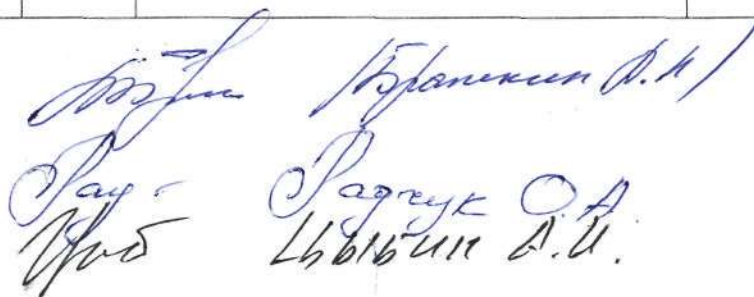 /Брашкин А.И/
Рад- Радчук О.А
Цыб Цыбин А.И.